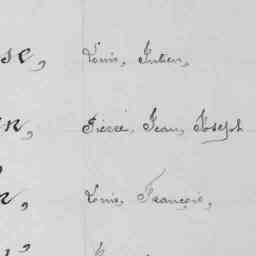 se, Louis, Julien,
n, Pierre, Jean, Joseph
, Louis, François,